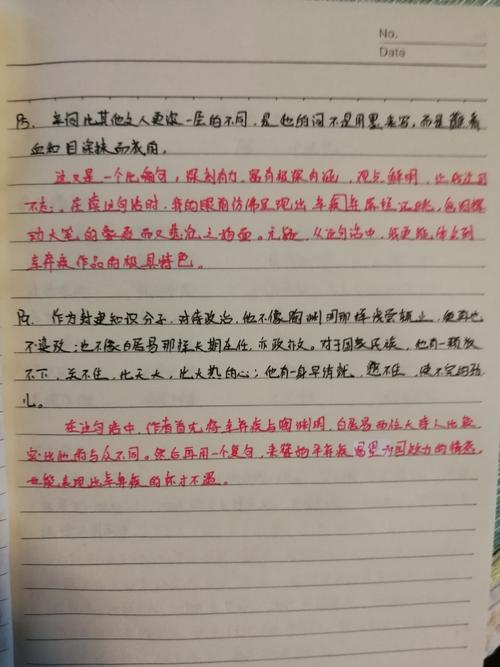 No.
Date
P5. 辛词比其他文人更深一层的不同,是他的词不是用墨来写,而是蘸着
血和泪涂抹而成的。
这又是一个比喻句,深刻有力,富有极深内涵,观点鲜明,让我过目
不忘。在读这句话时,我的眼前仿佛呈现出辛弃疾
动大笔的豪迈而又悲沧之场面。无疑,从这句话中,我更能体会到
辛弃疾作品的极具特色。
P2. 作为封建知识分子,对待政治,他不像陶渊明那样浅尝辄止,便再也
不染政;也不像白居易那样长期在任,亦政亦文。对于国家民族,他有一颗放
不下,关不住,比天大,比火热的心;他有一身早练就,憋不住,使不完的劲
儿。
在这句话中,作者首先将辛弃疾与陶渊明,白居易两位大诗人比较
突出他的与众不同。然后再用一个复句,来强调辛弃疾愿望为国效力的情意,
也能表现出辛弃疾的怀才不遇。